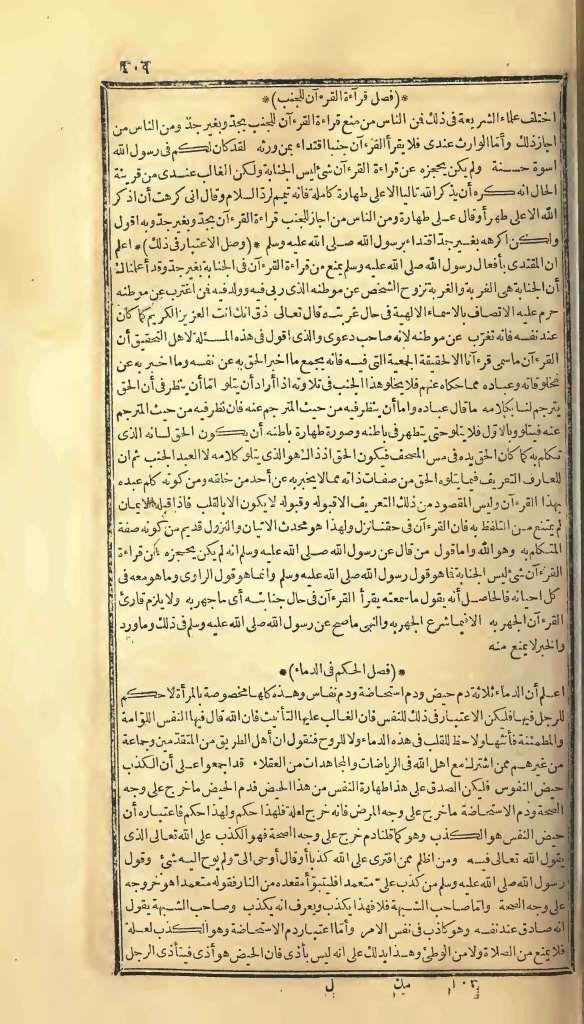 ٤٠٢
*(فصل قراءة القرءآن للجنب)*
اختلف علماء الشريعة فى ذلك فن الناس من منع قراءة القرءآن للجنب بحد وبغير حد ومن الناس من
اجاز ذلك وأما الوارث عندى فلا يقرأ القرءآن جنبا اقتداء بمن ورثه لقد كان لكم فى رسول الله
اسوة حسنة ولم يكن يحجزه عن قراءة القرءآن شئ ليس الجنابة ولكن الغالب عندى من قرينة
الحال انه كره أن يذكر الله تاليا الا على طهارة كاملة فانه تيمم لرد السلام وقال انى كرهت أن اذكر
الله الا على طهر أو قال على طهارة ومن الناس من اجاز للجنب قراءة القرءآن بحد وبغير حد وبه اقول
ولكن اكرهه بغير حد اقتداء برسول الله صلى الله عليه وسلم *(وصل الاعتبار فى ذلك)* اعلم
ان المقتدى بأفعال رسول الله صلى الله عليه وسلم يمنع من قراءة القرءآن فى الجنابة بغير حد وقد أعلمناك
أن الجنابة هى الغربة والغربة نزوح الشخص عن موطنه الذى ربى فيه وولد فيه فن اغترب عن موطنه
حرم عليه الاتصاف بالاسماء الالهية فى حال غربته قال تعالى ذق انك انت العزيز الكريم كما كان
عند نفسه فانه تغرب عن موطنه لانه صاحب دعوى والذى اقول فى هذه المسئلة لاهل التحقيق أن
القرءآن ما سمى قرءآنا الا لحقيقة الجمعية التى فيه فانه يجمع ما اخبر الحق به عن نفسه وما اخبر به عن
مخلوقاته وعباده مما حكاه عنهم فلا يخلو هذا الجنب فى تلاوته اذا أراد أن يتلو اما أن ينظر فى أن الحق
يترجم لنا بكلامه ما قال عباده واما أن ينظر فيه من حيث المترجم عنه فان نظر فيه من حيث المترجم
عنه فيتلو وبالاول فلا يتلو حتى يتطهر فى باطنه وصورة طهارة باطنه أن يكون الحق لسانه الذى
تكلم به كما كان الحق يده فى مس المصحف فيكون الحق اذ ذاك هو الذى يتلو كلامه لا العبد الجنب ثم ان
للعارف التعريف فيما يتلوه الحق من صفات ذاته مما لا يخبر به عن أحد من خلقه ومن كونه كلم عبده
بهذا القرءآن وليس المقصود من ذلك التعريف الا قبوله وقبوله لا يكون الا بالقلب فاذا قبله الايمان
لم يمتنع من التلفظ به فان القرءآن فى حقنا نزل ولهذا هو محدث الاتيان والنزول قديم من كونه صفة
المتكلم به وهو الله واما قول من قال عن رسول الله صلى الله عليه وسلم انه لم يكن يحجزه عن قراءة
القرءآن شئ ليس الجنابة فما هو قول رسول الله صلى الله عليه وسلم وانما هو قول الراوى وما هو معه فى
كل احيانه فالحاصل أنه يقول ما سمعته يقرأ القرءآن فى حال جنابته أى ما جهر به ولا يلزم قارئ
القرءآن الجهر به الا فيما شرع الجهر به والنهى ما صح عن رسول الله صلى الله عليه وسلم فى ذلك وما ورد
والخبر لا يمنع منه
*(فصل الحكم فى الدماء)*
اعلم أن الدماء ثلاثة دم حيض ودم استحاضة ودم نفاس وهذه كلها مخصوصة بالمرأة لا حكم
للرجل فيها فليكن الاعتبار فى ذلك للنفس فان الغالب عليها التأنيث فان الله قال فيها النفس اللوامة
والمطمئنة فأنثها ولا حظ للقلب فى هذه الدماء ولا للروح فنقول ان أهل الطريق من المتقدمين وجماعة
من غيرهم ممن اشترك مع اهل الله فى الرياضات والمجاهدات من العقلاء قد اجمعوا على أن الكذب
حيض النفوس فليكن الصدق على هذا طهارة النفس من هذا الحيض فدم الحيض ما خرج على وجه
الصحة ودم الاستحاضة ما خرج على وجه المرض فانه خرج لعلة فلهذا حكم ولهذا حكم فاعتباره أن
حيض النفس هو الكذب وهو كما قلنا دم خرج على وجه الصحة فهو الكذب على الله تعالى الذى
يقول الله تعالى فيه ومن اظلم ممن افترى على الله كذبا أو قال أوحى الى ولم يوح اليه شئ وقول
رسول الله صلى الله عليه وسلم من كذب على متعمدا فليتبوأ مقعده من النار فقوله متعمدا هو خروجه
على وجه الصحة واما صاحب الشبهة فلا فهذا يكذب ويعرف انه يكذب وصاحب الشبهة يقول
انه صادق عند نفسه وهو كاذب فى نفس الامر وأما اعتبار دم الاستحاضة وهو الكذب لعلة
فلا يمنع من الصلاة ولا من الوطئ وهذا يدلك على انه ليس بأذى فان الحيض هو أذى فيتأذى الرجل